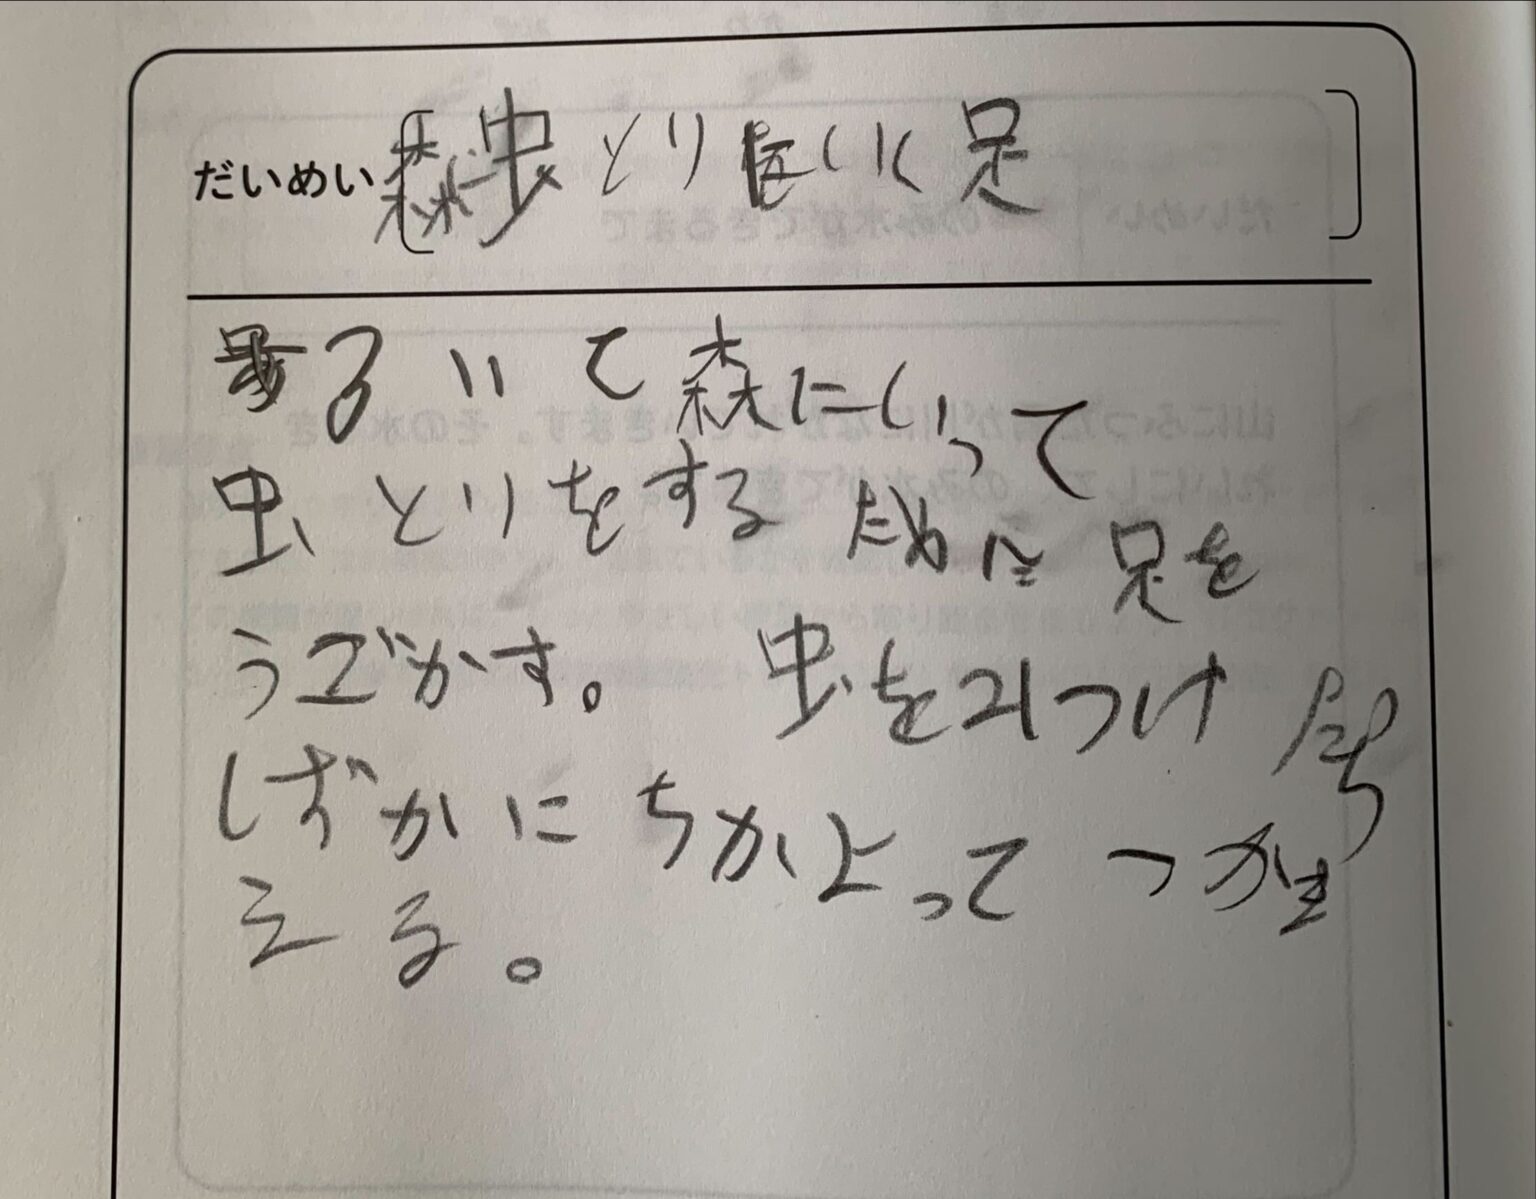 だいめい 森虫とりにいく足
あるいて森にいって
虫とりをするために足を
うごかす。虫をみつけ
しずかにちかよってつかま
える。